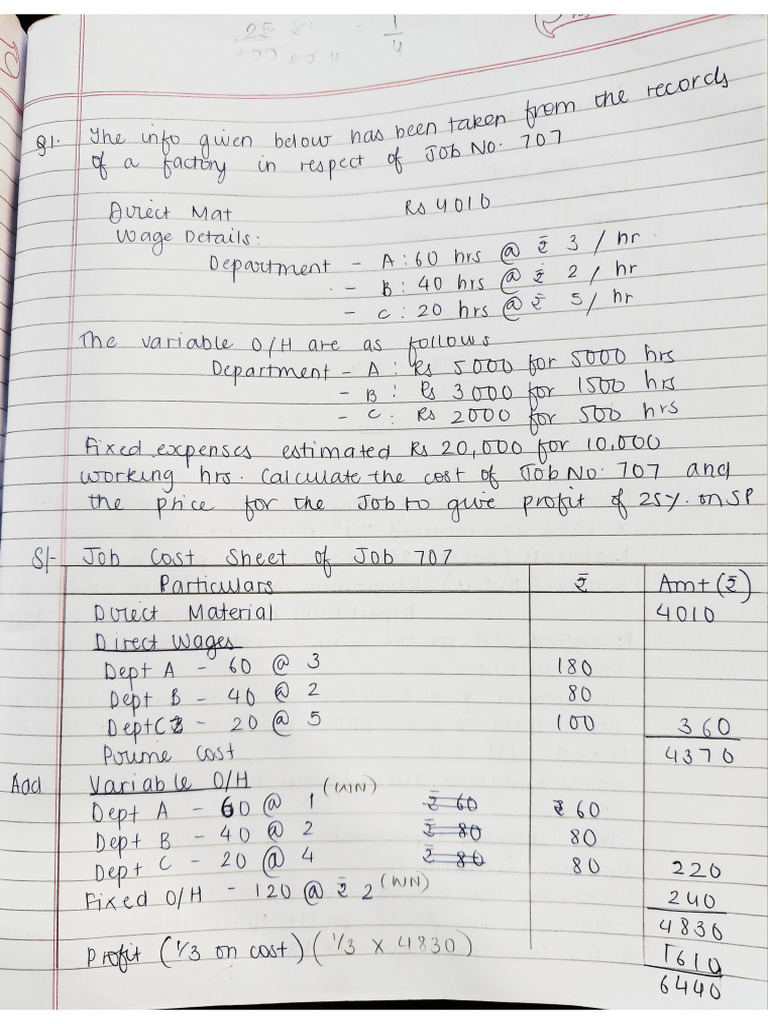 Q1. The info given below has been taken from the records
of a factory in respect of Job No. 707
Direct Mat Rs 4010
Wage Details:
Department - A : 60 hrs @ ₹ 3 / hr
- B : 40 hrs @ ₹ 2 / hr
- C : 20 hrs @ ₹ 5 / hr
The variable O/H are as follows
Department - A : Rs 5000 for 5000 hrs
- B : Rs 3000 for 1500 hrs
- C : Rs 2000 for 500 hrs
Fixed expenses estimated Rs 20,000 for 10,000
working hrs. Calculate the cost of Job No. 707 and
the price for the Job to give profit of 25%. on SP
S/- Job Cost Sheet of Job 707
Particulars ₹ Amt (₹)
Direct Material 4010
Direct Wages
Dept A - 60 @ 3 180
Dept B - 40 @ 2 80
Dept C - 20 @ 5 100 360
Prime cost 4370
Add Variable O/H
Dept A - 60 @ 1 (WN) ₹ 60 ₹ 60
Dept B - 40 @ 2 ₹ 80 80
Dept C - 20 @ 4 ₹ 80 80 220
Fixed O/H - 120 @ ₹ 2 (WN) 240
4830
Profit (1/3 on cost) (1/3 X 4830) 1610
6440